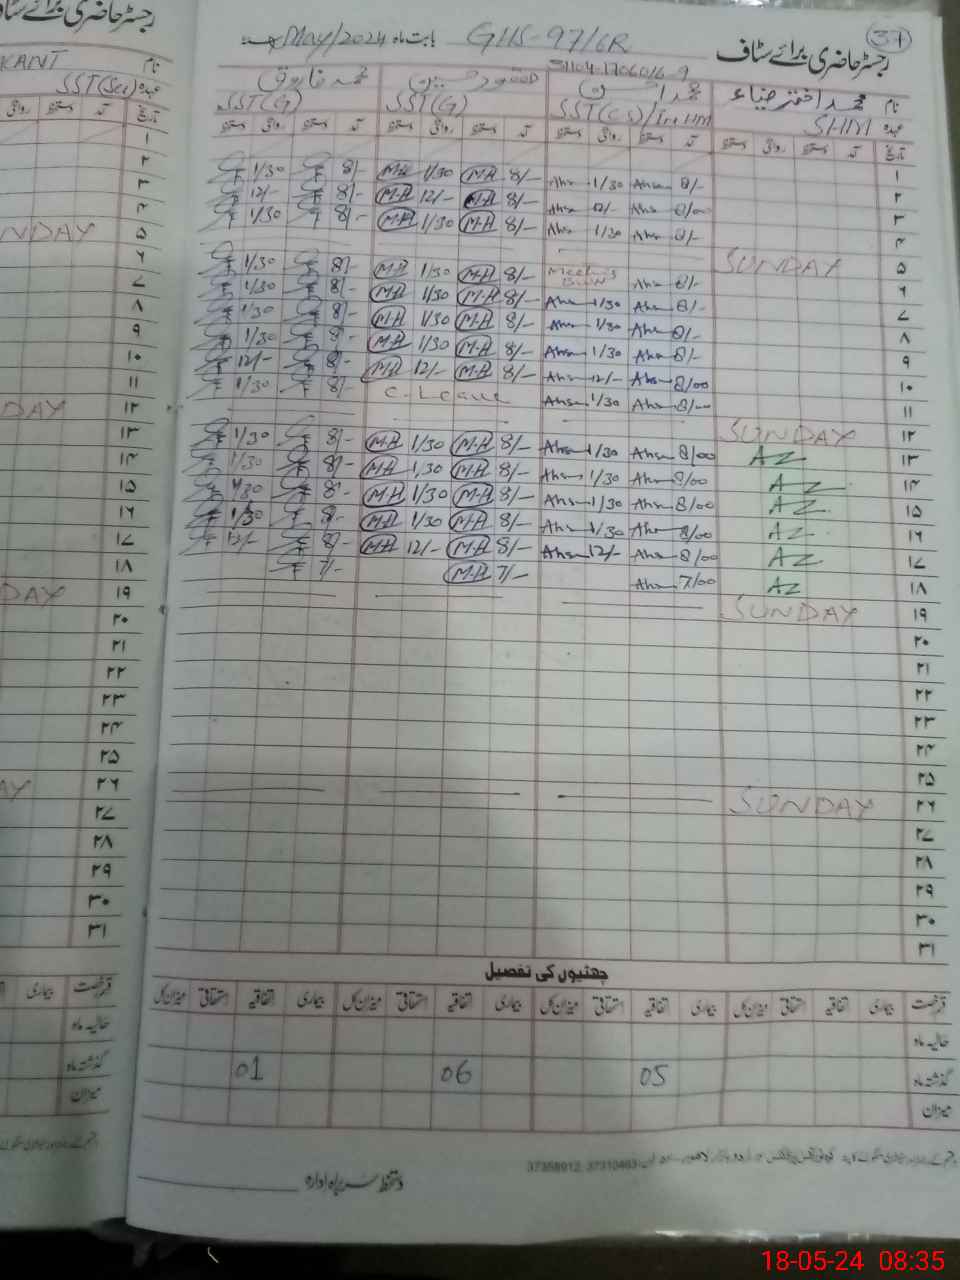 رجسٹر حاضری برائے سٹاف بابت ماہ May/2024 GHS-97/6R 37
31104-1706016-9
نام محمد اختر ضیاء محمد احسن مقصود حسین محمد فاروق
عہدہ SHM SST(CS)/In HM SST(G) SST(G)
تاریخ آمد دستخط روانگی دستخط آمد دستخط روانگی دستخط آمد دستخط روانگی دستخط آمد دستخط روانگی دستخط
۱ 8/- Ahs 1/30 Ahs 8/- M.A 1/30 M.A 8/- 1/30
۲ 8/00 Ahs 12/- Ahs 8/- M.A 12/- M.A 8/- 12/-
۳ 8/- Ahs 1/30 Ahs 8/- M.A 1/30 M.A 8/- 1/30
۴
۵ SUNDAY
۶ 8/- Ahs Meeting 8/- M.A 1/30 M.A 8/- 1/30
۷ 8/- Ahs 1/30 Ahs 8/- M.A 1/30 M.A 8/- 1/30
۸ 8/- Ahs 1/30 Ahs 8/- M.A 1/30 M.A 8/- 1/30
۹ 8/- Ahs 1/30 Ahs 8/- M.A 1/30 M.A 8/- 1/30
۱۰ 8/00 Ahs 12/- Ahs 8/- M.A 12/- M.A 8/- 12/-
۱۱ 8/00 Ahs 1/30 Ahs C-Leave 8/- 1/30
۱۲ SUNDAY
۱۳ AZ 8/00 Ahs 1/30 Ahs 8/- M.A 1/30 M.A 8/- 1/30
۱۴ AZ 8/00 Ahs 1/30 Ahs 8/- M.A 1/30 M.A 8/- 1/30
۱۵ AZ 8/00 Ahs 1/30 Ahs 8/- M.A 1/30 M.A 8/- 1/30
۱۶ AZ 8/00 Ahs 1/30 Ahs 8/- M.A 1/30 M.A 8/- 1/30
۱۷ AZ 8/00 Ahs 12/- Ahs 8/- M.A 12/- M.A 8/- 12/-
۱۸ AZ 7/00 Ahs 7/- M.A 7/-
۱۹ SUNDAY
۲۰
۲۱
۲۲
۲۳
۲۴
۲۵
۲۶ SUNDAY
۲۷
۲۸
۲۹
۳۰
۳۱
چھٹیوں کی تفصیل
قسم رخصت بیماری اتفاقیہ استحقاقی میزان کل بیماری اتفاقیہ استحقاقی میزان کل بیماری اتفاقیہ استحقاقی میزان کل بیماری اتفاقیہ استحقاقی میزان کل
حالیہ ماہ
گذشتہ ماہ 05 06 01
میزان
37358912, 37310463
دستخط سربراہ ادارہ
رجسٹر حاضری برائے سٹاف
نام KANT
عہدہ SST(Sci)
تاریخ آمد دستخط روانگی
۱
۲
۳
۴
۵ NDAY
۶
۷
۸
۹
۱۰
۱۱
۱۲ DAY
۱۳
۱۴
۱۵
۱۶
۱۷
۱۸
۱۹ DAY
۲۰
۲۱
۲۲
۲۳
۲۴
۲۵
۲۶ AY
۲۷
۲۸
۲۹
۳۰
۳۱
قسم رخصت بیماری
حالیہ ماہ
گذشتہ ماہ
میزان
18-05-24 08:35